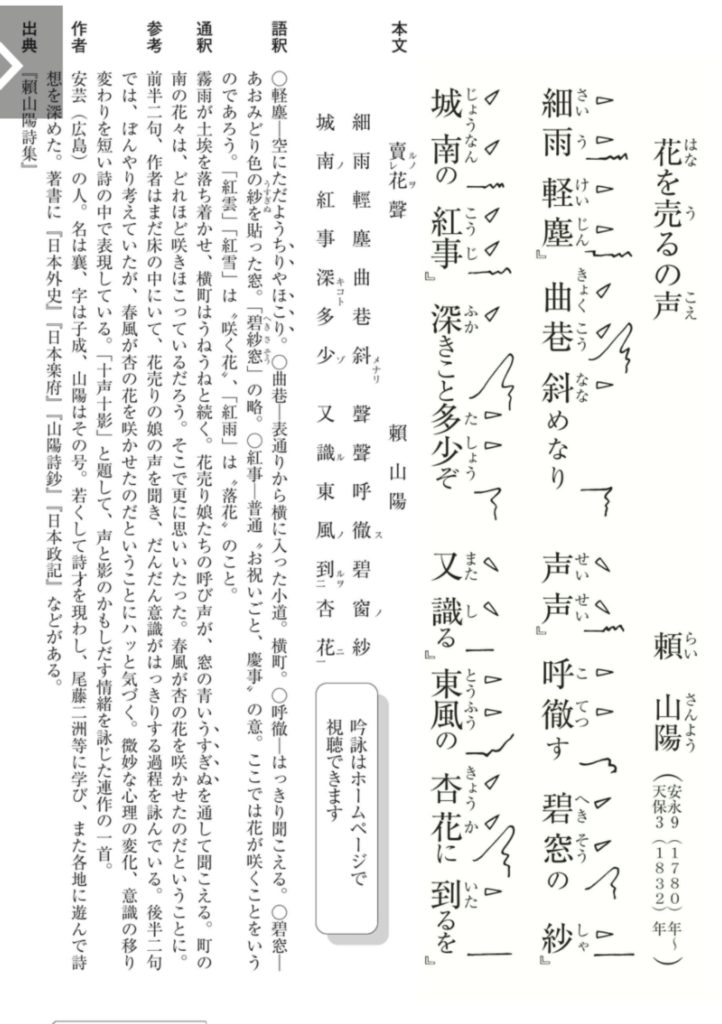 花を売るの声
はな う こえ
頼 山陽
らい さんよう
(安永9(1780)年〜
天保3(1832)年)
細雨 軽塵 曲巷 斜めなり 声声 呼徹す 碧窓の 紗
さい う けい じん きょく こう なな せい せい こ てつ へき そう しゃ
城南の 紅事 深きこと 多少ぞ 又 識る 東風の 杏花に 到るを
じょう なん こう じ ふか た しょう また し とう ふう きょう か いた
本文
賣レ花聲 頼山陽
ルノ ヲ
細雨輕塵曲巷斜 聲聲呼徹碧窗紗
メナリ ス ノ
城南紅事深多少 又識東風到二杏花一
ノ キコト ゾ ル ノ ルヲ ニ
吟詠はホームページで
視聴できます
語釈
○軽塵―空にただようちりやほこり。○曲巷―表通りから横に入った小道。横町。○呼徹―はっきり聞こえる。○碧窓―
あおみどり色の紗を貼った窓。「碧紗窓」の略。○紅事―普通〝お祝いごと、慶事〟の意。ここでは花が咲くことをいう
うすぎぬ へき さ そう
のであろう。「紅雲」「紅雪」は〝咲く花〟、「紅雨」は〝落花〟のこと。
通釈
霧雨が土埃を落ち着かせ、横町はうねうねと続く。花売り娘たちの呼び声が、窓の青いうすぎぬを通して聞こえる。町の
南の花々は、どれほど咲きほこっているだろう。そこで更に思いいたった。春風が杏の花を咲かせたのだということに。
参考
前半二句、作者はまだ床の中にいて、花売りの娘の声を聞き、だんだん意識がはっきりする過程を詠んでいる。後半二句
では、ぼんやり考えていたが、春風が杏の花を咲かせたのだということにハッと気づく。微妙な心理の変化、意識の移り
変わりを短い詩の中で表現している。「十声十影」と題して、声と影のかもしだす情緒を詠じた連作の一首。
作者
安芸(広島)の人。名は襄、字は子成、山陽はその号。若くして詩才を現わし、尾藤二洲等に学び、また各地に遊んで詩
想を深めた。著書に『日本外史』『日本楽府』『山陽詩鈔』『日本政記』などがある。
出典
『頼山陽詩集』